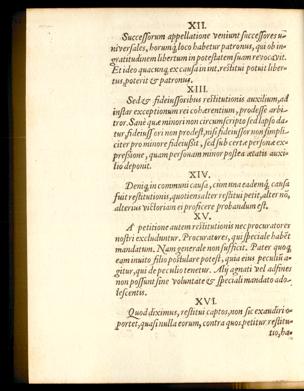 XII.
Successorum appellatione veniunt successores u-
niversales, horumq́; loco habetur patronus, qui ob in-
gratitudinem libertum in potestatem suam revocavit.
Et ideo quacunq; ex causa in int. restitui potuit liber-
tus, poterit & patronus.
XIII.
Sed & fideiussoribus restitutionis auxilium, ad
instar exceptionum rei cohærentium, prodesse arbi-
tror. Sanè quæ minori non circumscripto sed lapso da-
tur, fideiussori non prodest, nisi fideiussor non simpli-
citer pro minore fideiussit, sed sub certæ personæ ex-
pressione, quam personam minor postea ætatis auxi-
lio deponit.
XIV.
Deniq; in communi causa, cùm una eademq́; causa
fuit restitutionis, quotiens alter restitui petit, alter nō,
alterius victoriam ei proficere probandum est.
XV.
A petitione autem restitutionis nec procuratores
nostri excluduntur. Procuratores, qui speciale habēt
mandatum. Nam generale non sufficit. Pater quoq;
eam invito filio postulare potest, quia eius peculiū a-
gitur, qui de peculio tenetur. Alij agnati vel adfines
non possunt sine voluntate & speciali mandato ado-
lescentis.
XVI.
Quod diximus, restitui captos, non sic exaudiri o-
portet, quasi nulla eorum, contra quos petitur restitu-
tio, ha-